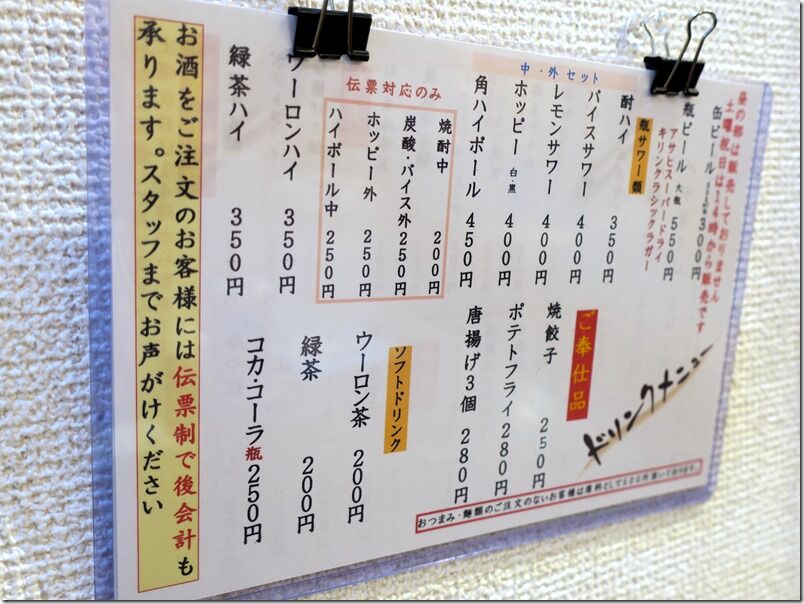 昼の部は販売しておりません
土曜祝日は14時から販売です
缶ビール 300円
瓶ビール 大瓶 550円
アサヒスーパードライ
キリンクラシックラガー
瓶サワー類
酎ハイ 350円
中・外セット
バイスサワー 400円
レモンサワー 400円
ホッピー 白・黒 400円
角ハイボール 450円
伝票対応のみ
焼酎中 200円
炭酸・バイス外 250円
ホッピー外 250円
ハイボール中 250円
ウーロンハイ 350円
緑茶ハイ 350円
ドリンクメニュー
ご奉仕品
焼餃子 250円
ポテトフライ 280円
唐揚げ3個 280円
ソフトドリンク
ウーロン茶 200円
緑茶 200円
コカ・コーラ瓶 250円
おつまみ・麺類のご注文のないお客様は席料として500円頂いております
お酒をご注文のお客様には伝票制で後会計も
承ります。スタッフまでお声がけください